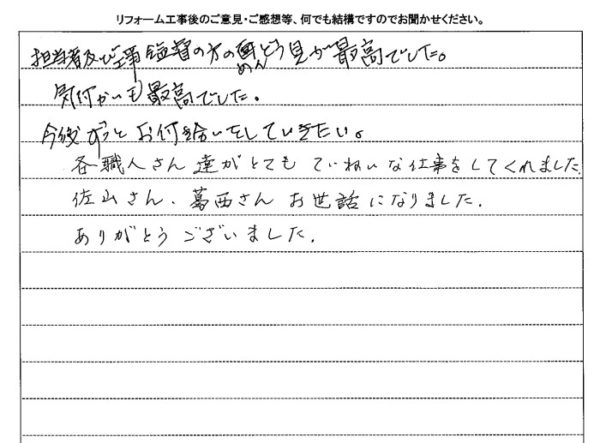 リフォーム工事後のご意見・ご感想等、何でも結構ですのでお聞かせください。
担当者及び工事監督の方の面どう見が最高でした。
めん
気付かいも最高でした。
今後ずっとお付き合いをしていきたい。
各職人さん達がとてもていねいな仕事をしてくれました.
佐山さん、葛西さんお世話になりました.
ありがとうございました.